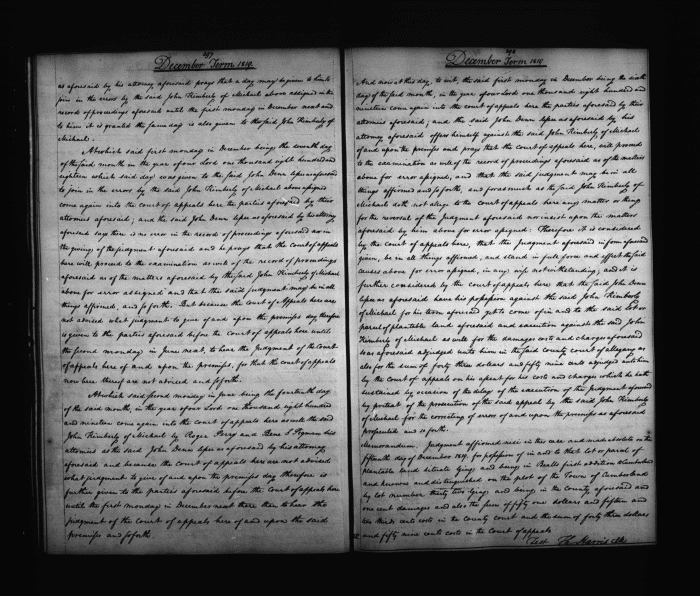 297
December Term 1819.
as aforesaid by his attorney aforesaid prays that a day may be given to him to
join in the error by the said John Kimberly of Michael above assigned in the
record of proceedings aforesaid until the first monday in December next and
to him it is granted the same day is also given to the said John Kimberly of
Michael:
At which said first monday in December being the seventh day
of the said month in the year of our Lord one thousand eight hundred and
eighteen which said day was given to the said John Denn Lessee as aforesaid
to join in the errors by the said John Kimberly of Michael above assigned
come again into the court of appeals here the parties aforesaid by their
attornies aforesaid; and the said John Denn Lessee as aforesaid by his attorney
aforesaid says there is no error in the record of proceedings aforesaid nor in
the giving of the judgment aforesaid and he prays that the court of appeals
here will proceed to the examination as well of the record of proceedings
aforesaid as of the matters aforesaid by the said John Kimberly of Michael
above for error assigned and that the said judgment may be in all
things affirmed, and so forth. But because the court of appeals here are
not advised what judgment to give of and upon the premises day therefore
is given to the parties aforesaid before the court of appeals here until
the second monday in June next, to hear the judgment of the court
of appeals here of and upon the premises, for that the court of appeals
now here thereof are not advised and so forth.
At which said second monday in June being the fourteenth day
of the said month, in the year of our Lord one thousand eight hundred
and nineteen come again into the court of appeals here as well the said
John Kimberly of Michael by Roger Perry and Bene S. Pigman his
attornies as the said John Denn Lessee as aforesaid by his attorney
aforesaid and because the court of appeals here are not advised
what judgment to give of and upon the premises day therefore is
further given to the parties aforesaid before the court of appeals here
until the first monday in December next there then to hear the
judgment of the court of appeals here of and upon the said
premises and so forth
298
December Term 1819
And now at this day, to wit, the said first monday in December being the sixth
day of the said month, in the year of our lord one thousand eight hundred and
nineteen come again into the court of appeals here the parties aforesaid by their
attornies aforesaid; and the said John Denn Lessee as aforesaid by his
attorney aforesaid offers himself against the said John Kimberly of Michael
of and upon the premises and prays that the court of appeals here, will proceed
to the examination as well of the record of proceedings aforesaid as of the matters
above for error assigned, and that the said judgment may be in all
things affirmed and so forth, and forasmuch as the said John Kimberly of
Michael doth not alledge to the court of appeals here any matter or thing
for the reversal of the judgment aforesaid nor insist upon the matters
aforesaid by him above for error assigned: Therefore it is considered
by the court of appeals here, that the judgment aforesaid in form aforesaid
given, be in all things affirmed, and stand in full force and effect the said
causes above for error assigned, in any wise notwithstanding; and it is
further considered by the court of appeals here that the said John Denn
Lessee as aforesaid have his possession against the said John Kimberly
of Michael for his term aforesaid yet to come of in and to the said lot or
parcel of plantable land aforesaid and execution against the said John
Kimberly of Michael as well for the damages costs and charges aforesaid
so as aforesaid adjudged unto him in the said county court of Allegany as
also for the sum of forty three dollars and fifty nine cents adjudged unto him
by the court of appeals on his assent for his costs and charges which he hath
sustained by occasion of the delay of the execution of the judgment aforesaid
by pretext of the prosecution of the said appeal by the said John Kimberly
of Michael for the correcting of errors of and upon the premises as aforesaid
prosecuted and so forth.
Memorandum. Judgment affirmed nisi in this case and made absolute on the
fifteenth day of December 1819. for possession of in and to that lot or parcel of
plantable land situate lying and being in Bealls first addition to Cumberland
and known and distinguished on the plot of the Town of Cumberland
by lot number thirty two lying and being in the county aforesaid and
one cent damages and also the sum of fifty one dollars and fifteen and
two thirds cents costs in the county court and the sum of forty three dollars
and fifty nine cents costs in the court of appeals
Test Th Harris Clk